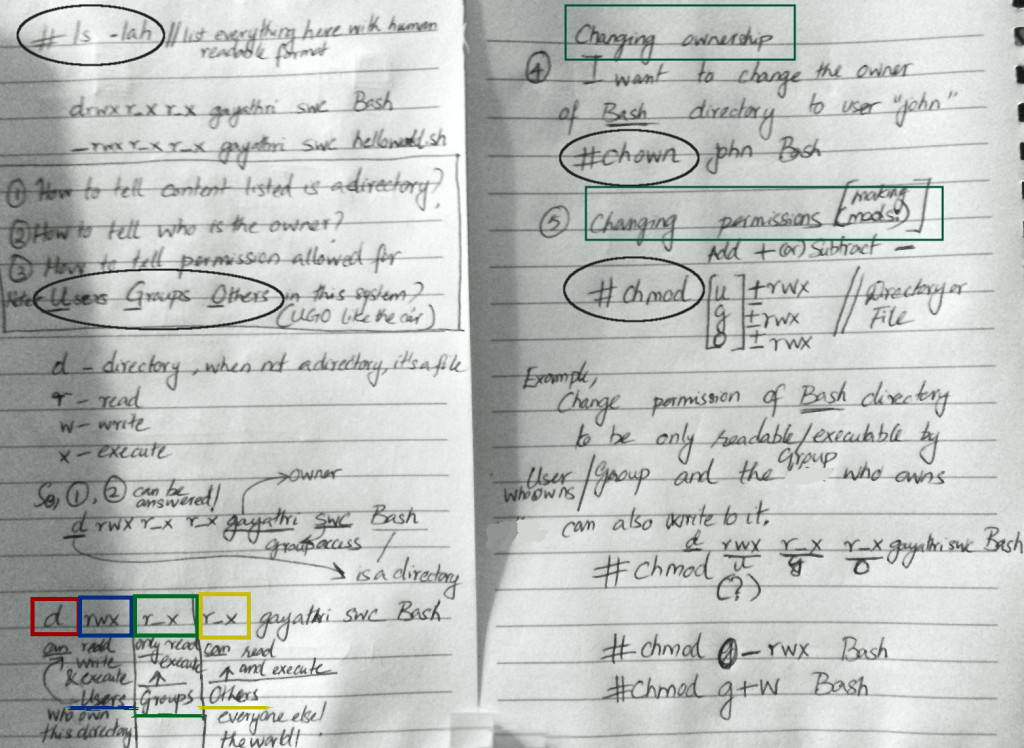 # ls -lah //list everything here with human
readable format
drwx r_x r_x gayathri swc Bash
_rwx r_x r_x gayathri swc helloworld.sh
① How to tell content listed is a directory?
② How to tell who is the owner?
③ How to tell permission allowed for
Users Groups Others in this system?
(UGO like the car)
d - directory, when not a directory, it's a file
r - read
w - write
x - execute
So, ①, ② can be answered!
owner
d rwx r_x r_x gayathri swc Bash
group access
is a directory
d rwx r_x r_x gayathri swc Bash
can read write & execute
Users
who own this directory
only read execute
Groups
can read and execute
Others
everyone else!
the world!
Changing ownership
④ I want to change the owner
of Bash directory to user "john"
#chown john Bash
⑤ Changing permissions [making mods!]
Add + (or) Subtract -
#chmod [u ±rwx // Directory or
g ±rwx File
o] ±rwx
Example,
Change permission of Bash directory
to be only readable/executable by
User/Group and the Group who owns
who owns
can also write to it.
d rwx r_x r_x gayathri swc Bash
#chmod u g o
(?)
#chmod o-rwx Bash
#chmod g+w Bash